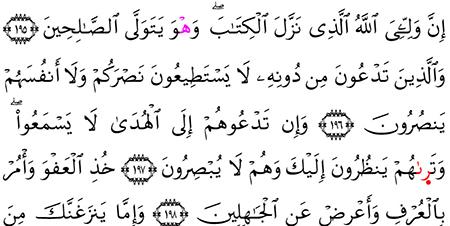 إِنَّ وَلِـِّۧىَ ٱللَّهُ ٱلَّذِى نَزَّلَ ٱلْكِتَٰبَۖ وَهْوَ يَتَوَلَّى ٱلصَّٰلِحِينَ ١٩٥
وَٱلَّذِينَ تَدْعُونَ مِن دُونِهِۦ لَا يَسْتَطِيعُونَ نَصْرَكُمْ وَلَا أَنفُسَهُمْ
يَنصُرُونَ ١٩٦ وَإِن تَدْعُوهُمْ إِلَى ٱلْهُدَىٰ لَا يَسْمَعُوا۟ۖ
وَتَر۪ىٰهُمْ يَنظُرُونَ إِلَيْكَ وَهُمْ لَا يُبْصِرُونَ ١٩٧ خُذِ ٱلْعَفْوَ وَأْمُرْ
بِٱلْعُرْفِ وَأَعْرِضْ عَنِ ٱلْجَٰهِلِينَ ١٩٨ وَإِمَّا يَنزَغَنَّكَ مِنَ